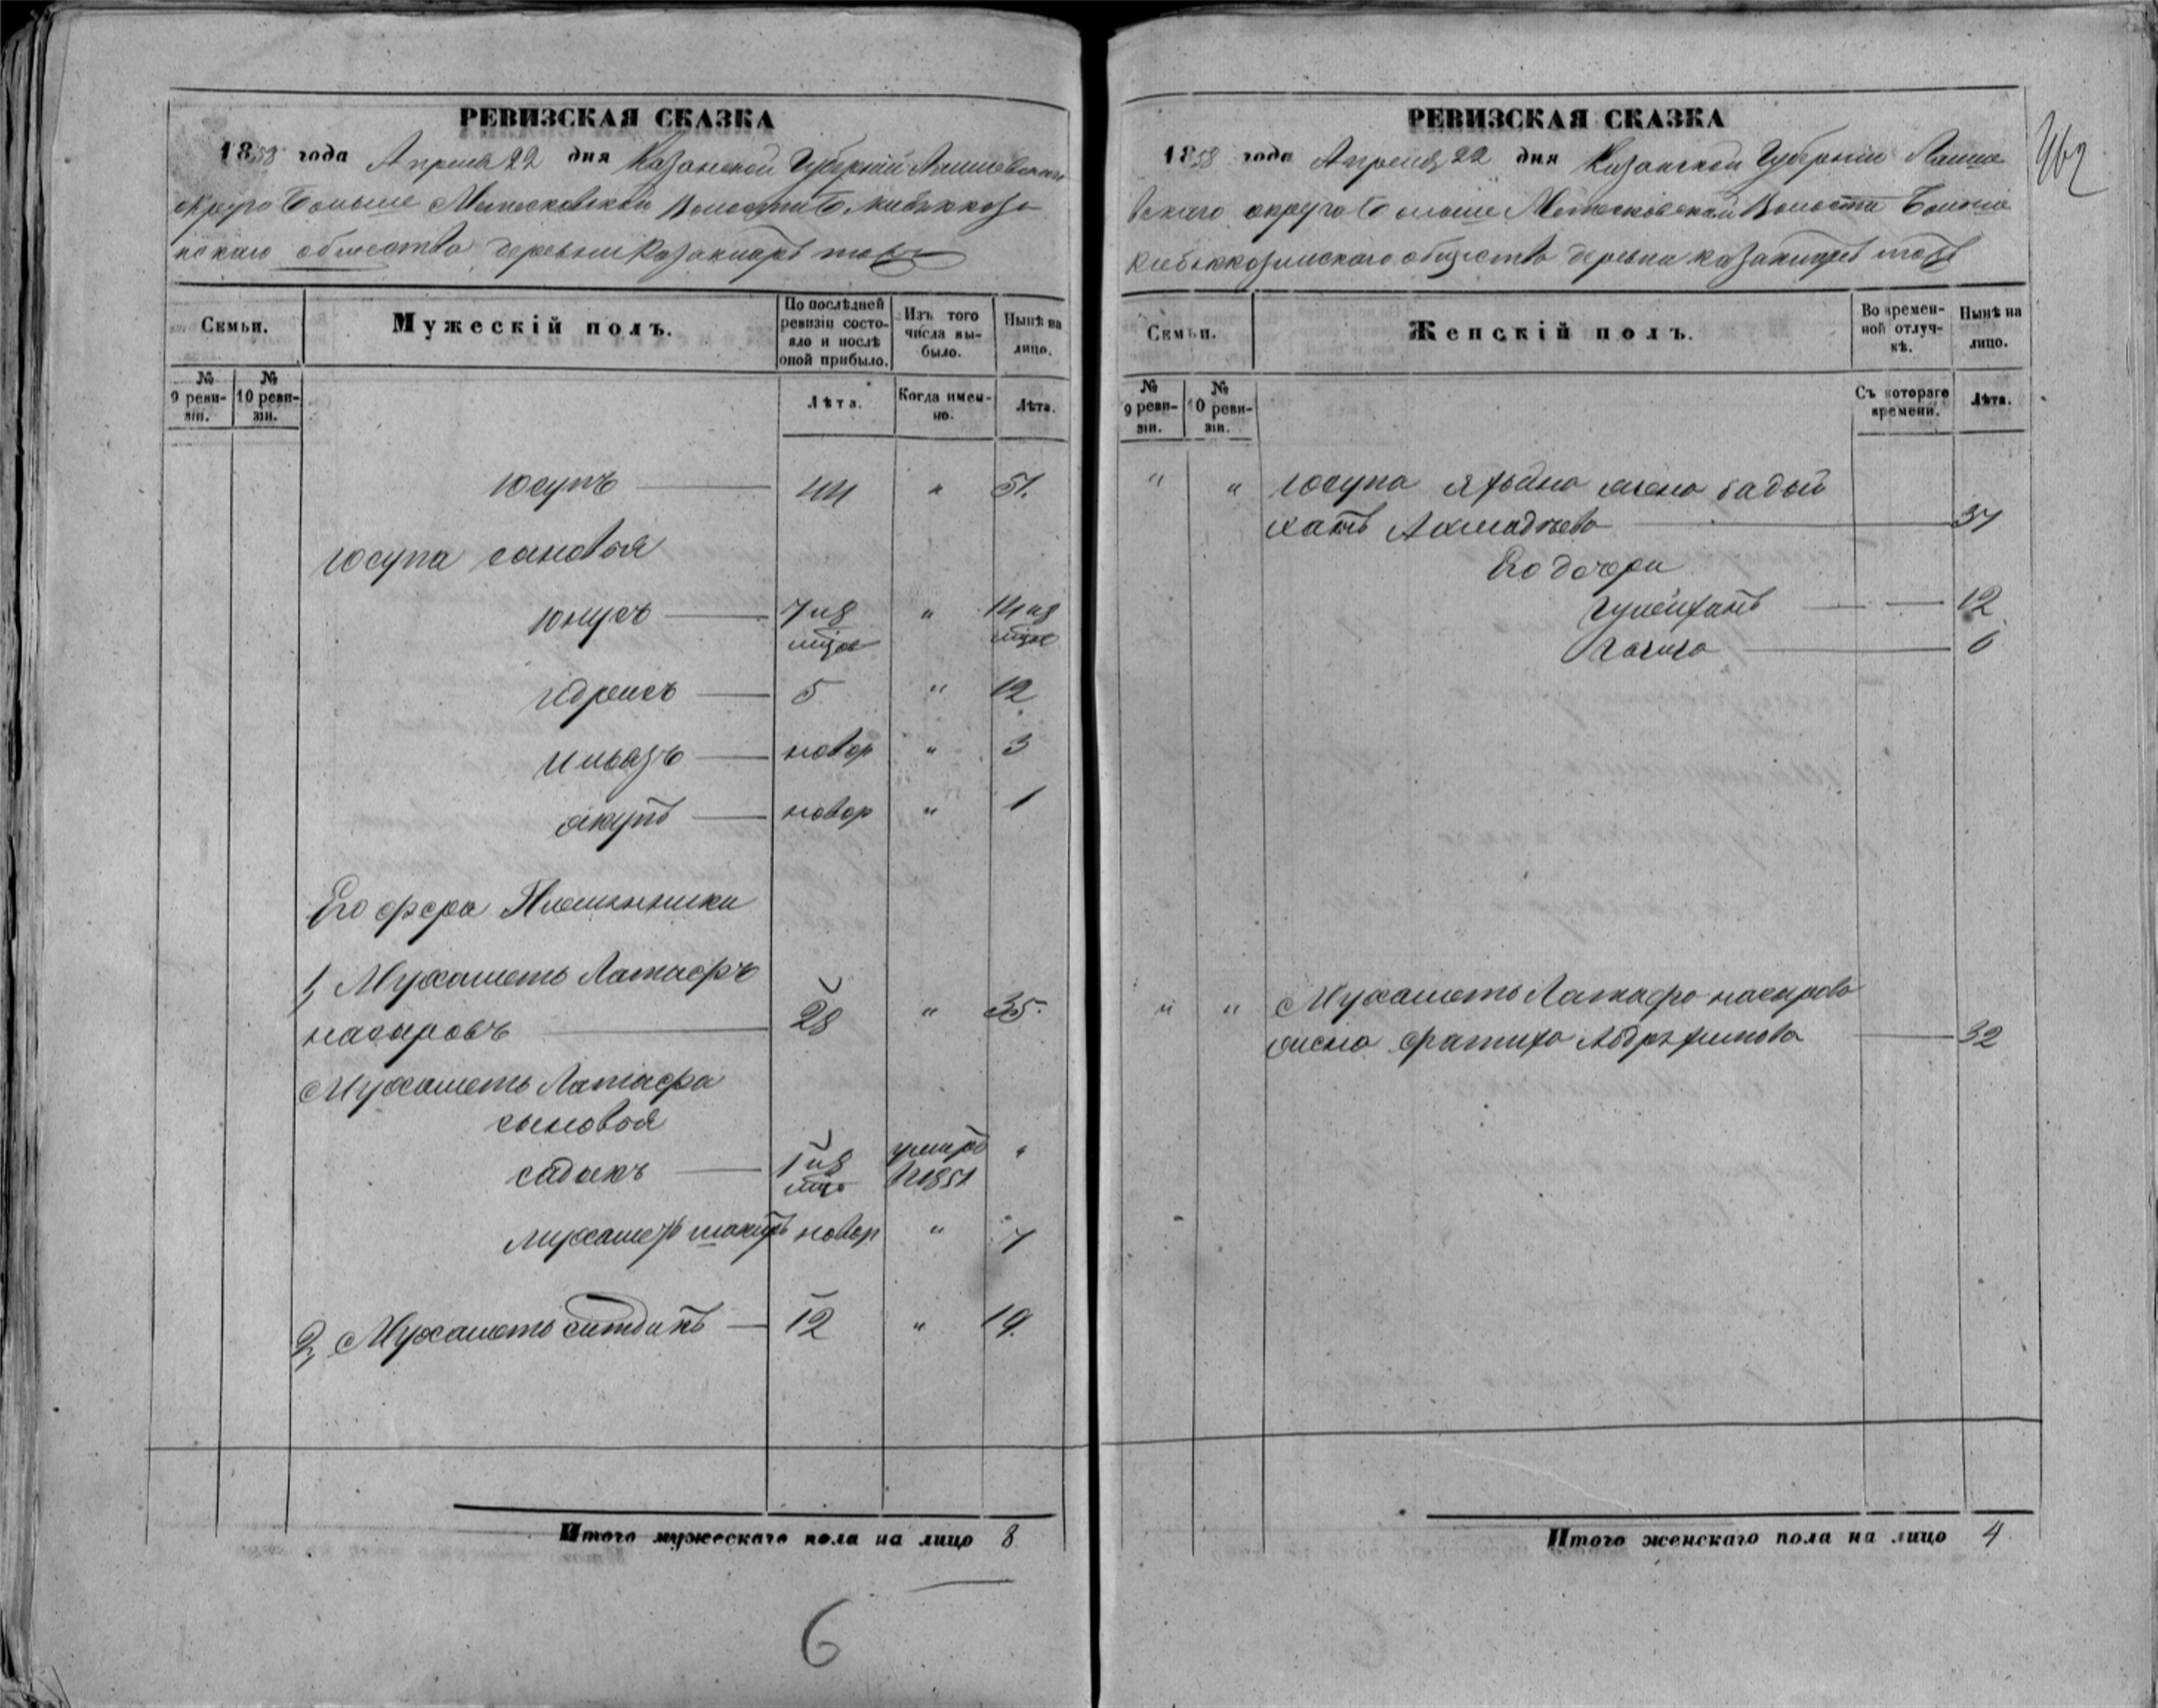 РЕВИЗСКАЯ СКАЗКА
1858 года Апреля 22 дня Казанской Губерніи Лаишевскаго
округа Больше Метесковской Волости Б. Кибяккози
нскаго общества деревни Казакларъ тожъ
Семьи.
Мужескій полъ.
По послѣдней ревизіи состояло и послѣ оной прибыло.
Изъ того числа выбыло.
Нынѣ на лицо.
№ 9 ревизіи.
№ 10 ревизіи.
Лѣта.
Когда именно.
Лѣта.
Юсупъ 44 " 51.
Юсупа сыновья
Юнусъ 7 и 8 мцов " 14 и 8 мцов
Идрисъ 5 " 12
Ильязъ новор " 3
Якупъ новор " 1
Его Племянники
1, Мухаметь Латыфъ
Насыровъ 28 " 35.
Мухаметь Латыфа
сыновья
Садыкъ 1 и 8 мцо умеръ в 1851 "
Мухаметь Шакиръ новор " 7
2, Мухаметь Ситдикъ 12 " 19.
Итого мужескаго пола на лицо 8
6
РЕВИЗСКАЯ СКАЗКА
462
1858 года Апреля 22 дня Казанской Губерніи Лаише
вскаго округа Больше Метесковской Волости Больше
Кибяккозинскаго общества деревни Казакларъ тожъ
Семьи.
Женскій полъ.
Во временной отлучкѣ.
Нынѣ на лицо.
№ 9 ревизіи.
№ 10 ревизіи.
Съ котораго времени.
Лѣта.
" " Юсупа жена Бадый
Ахмадіева 37
Его дочери
12
6
" " Мухаметь Латыфа Насырова
жена Фатиха 32
Итого женскаго пола на лицо 4